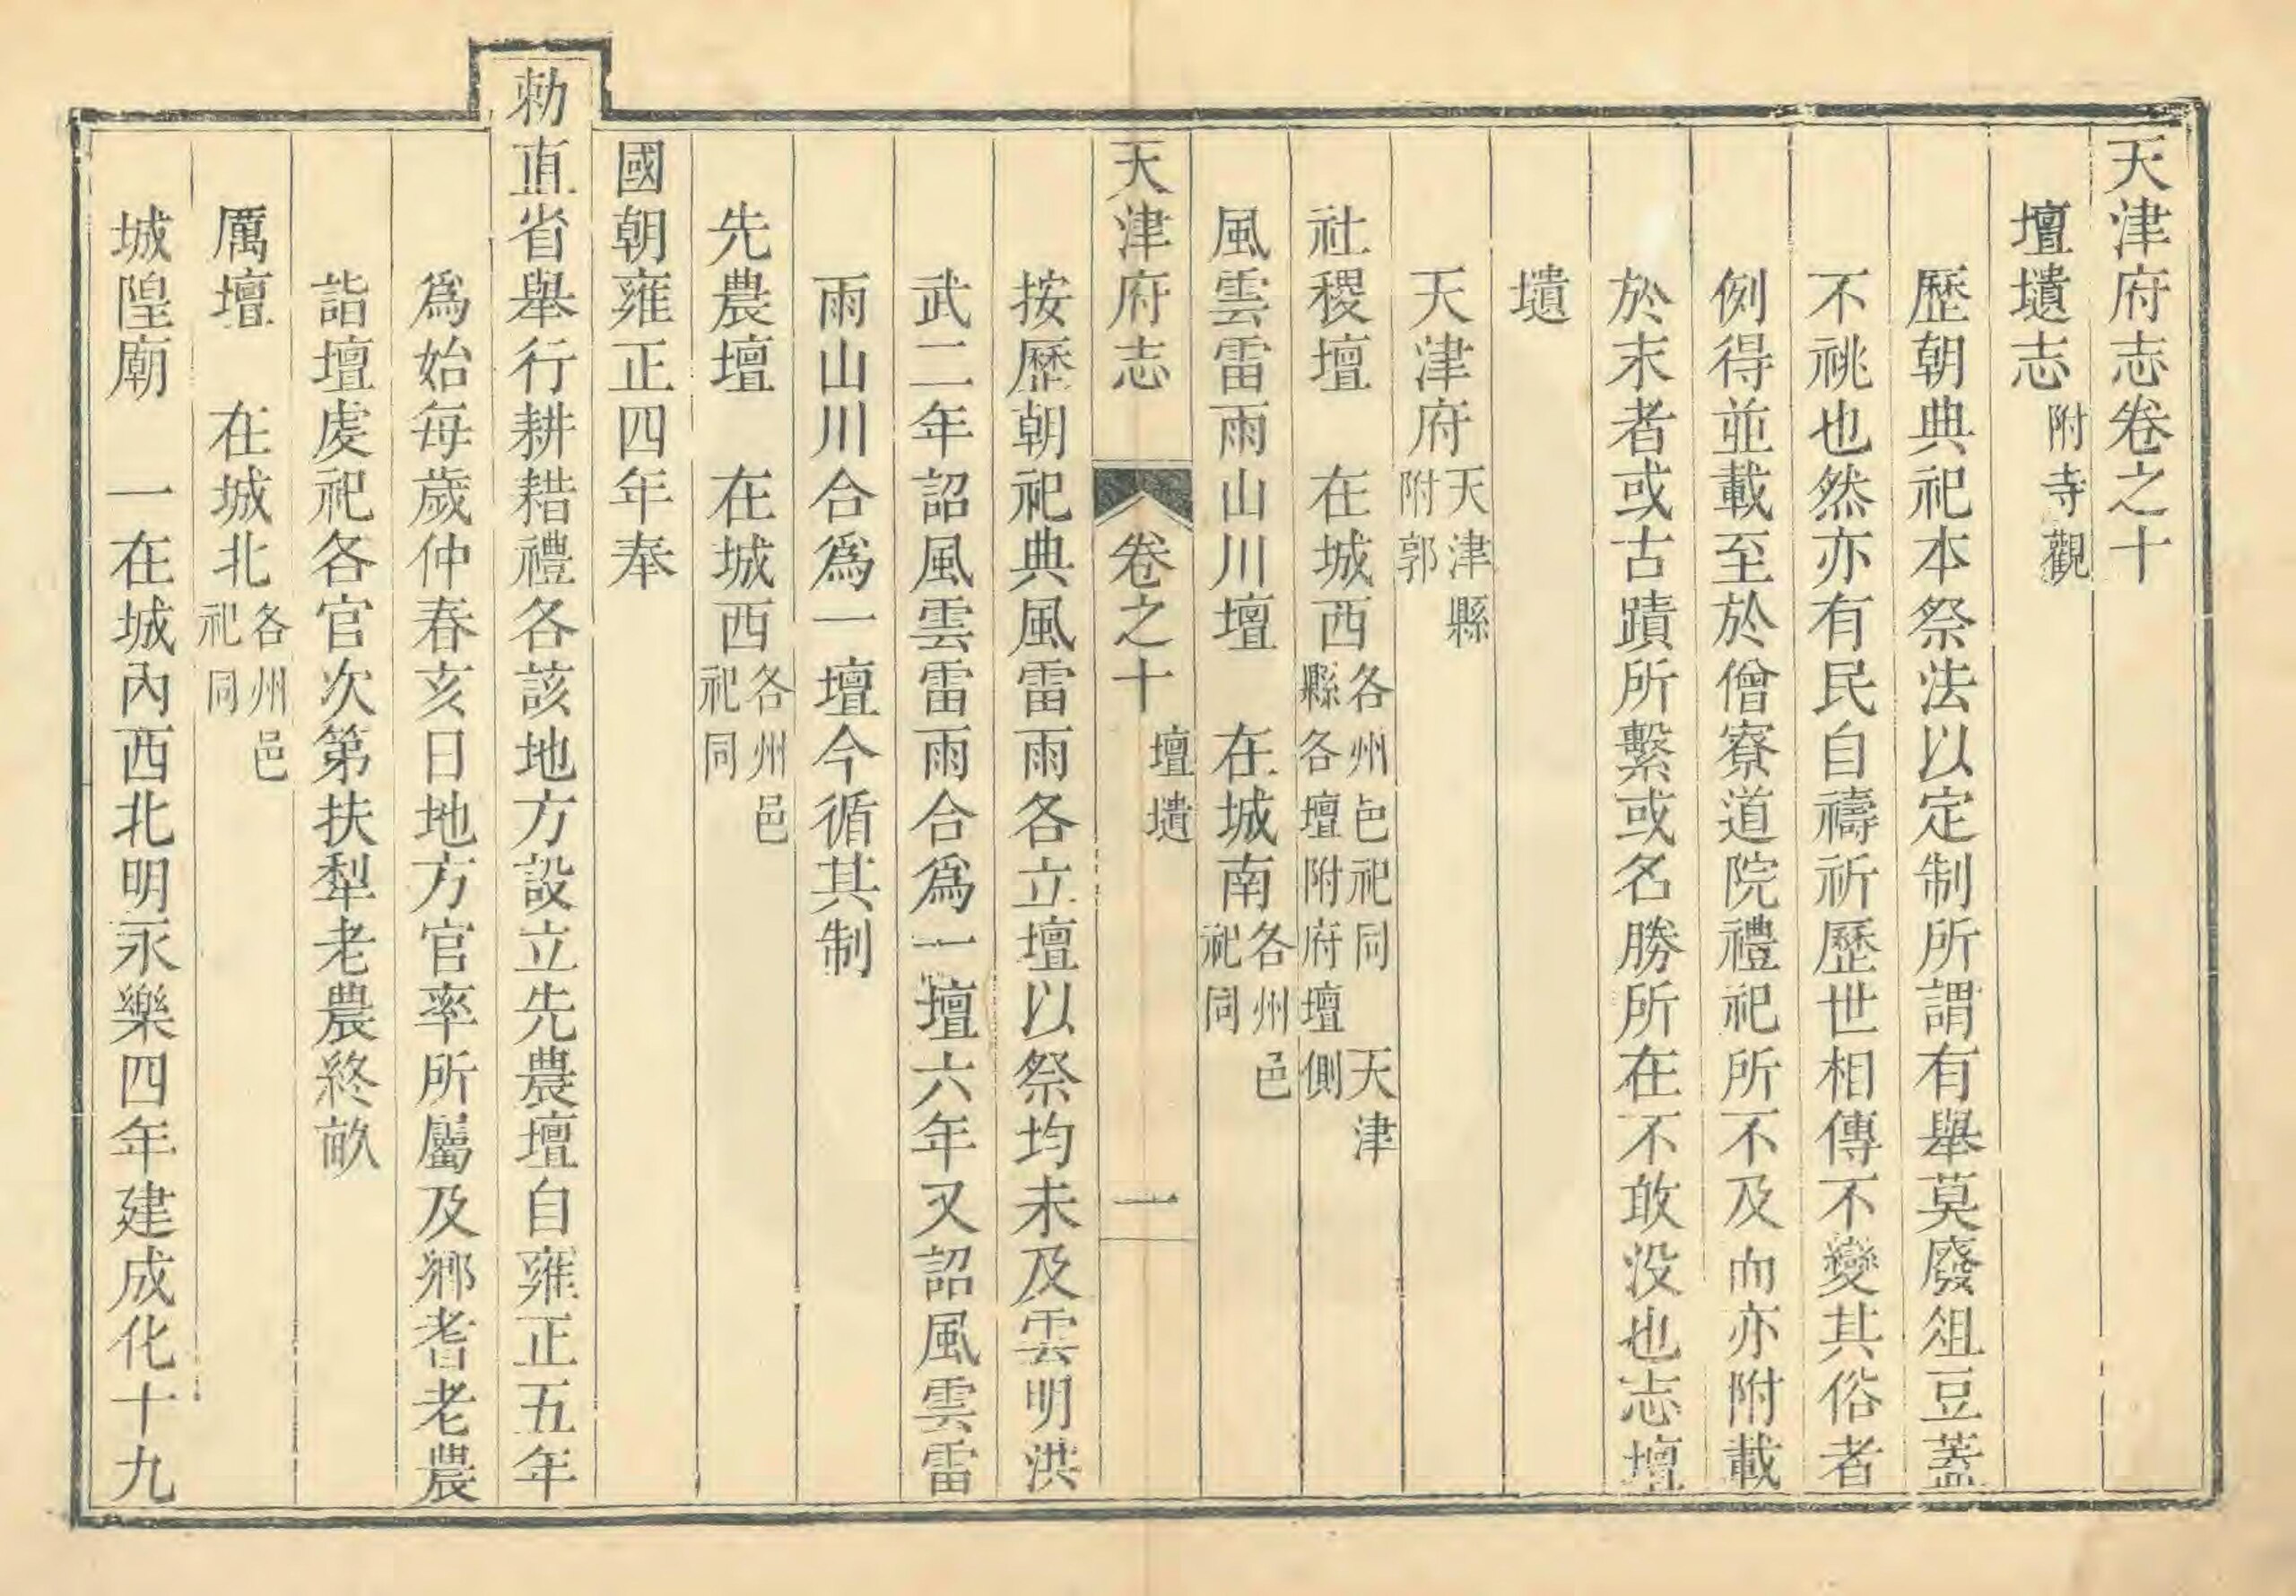 天津府志卷之十
壇壝志附寺觀
歷朝典祀本祭法以定制所謂有舉莫廢俎豆蓋
不祧也然亦有民自禱祈歷世相傳不變其俗者
例得並載至於僧寮道院禮祀所不及而亦附載
於末者或古蹟所繫或名勝所在不敢没也志壇
壝
天津府天津縣附郭
社稷壇 在城西各州邑祀同 天津縣各壇附府壇側
風雲雷雨山川壇 在城南各州邑祀同
天津府志 卷之十 壇壝 一
按歷朝祀典風雷雨各立壇以祭均未及雲明洪
武二年詔風雲雷雨合爲一壇六年又詔風雲雷
雨山川合爲一壇今循其制
先農壇 在城西各州邑祀同
國朝雍正四年奉
勅直省舉行耕耤禮各該地方設立先農壇自雍正五年
爲始每歲仲春亥日地方官率所屬及鄉耆老農
詣壇處祀各官次第扶犁老農終畝
厲壇 在城北各州邑祀同
城隍廟 一在城內西北明永樂四年建成化十九